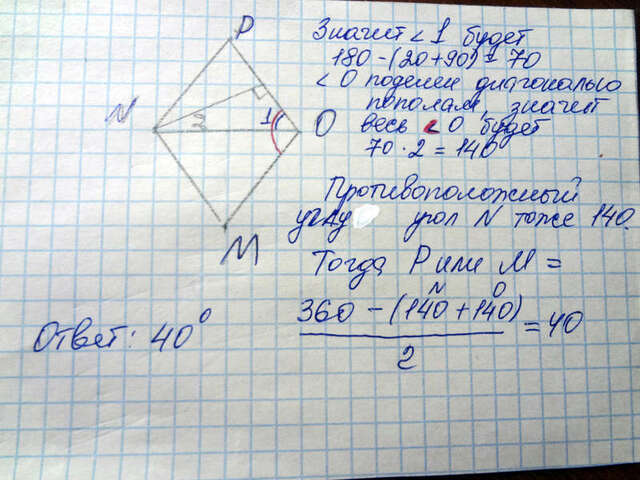 P
N
2
1
O
M
Значит < 1 будет
180 - (20 + 90) = 70
< O поделен диагональю
пополам, значит
весь < O будет
70 · 2 = 140
Противоположный
углу угол N тоже 140.
Тогда P или M =
N O
360 - (140 + 140)
2
= 40
Ответ: 40°